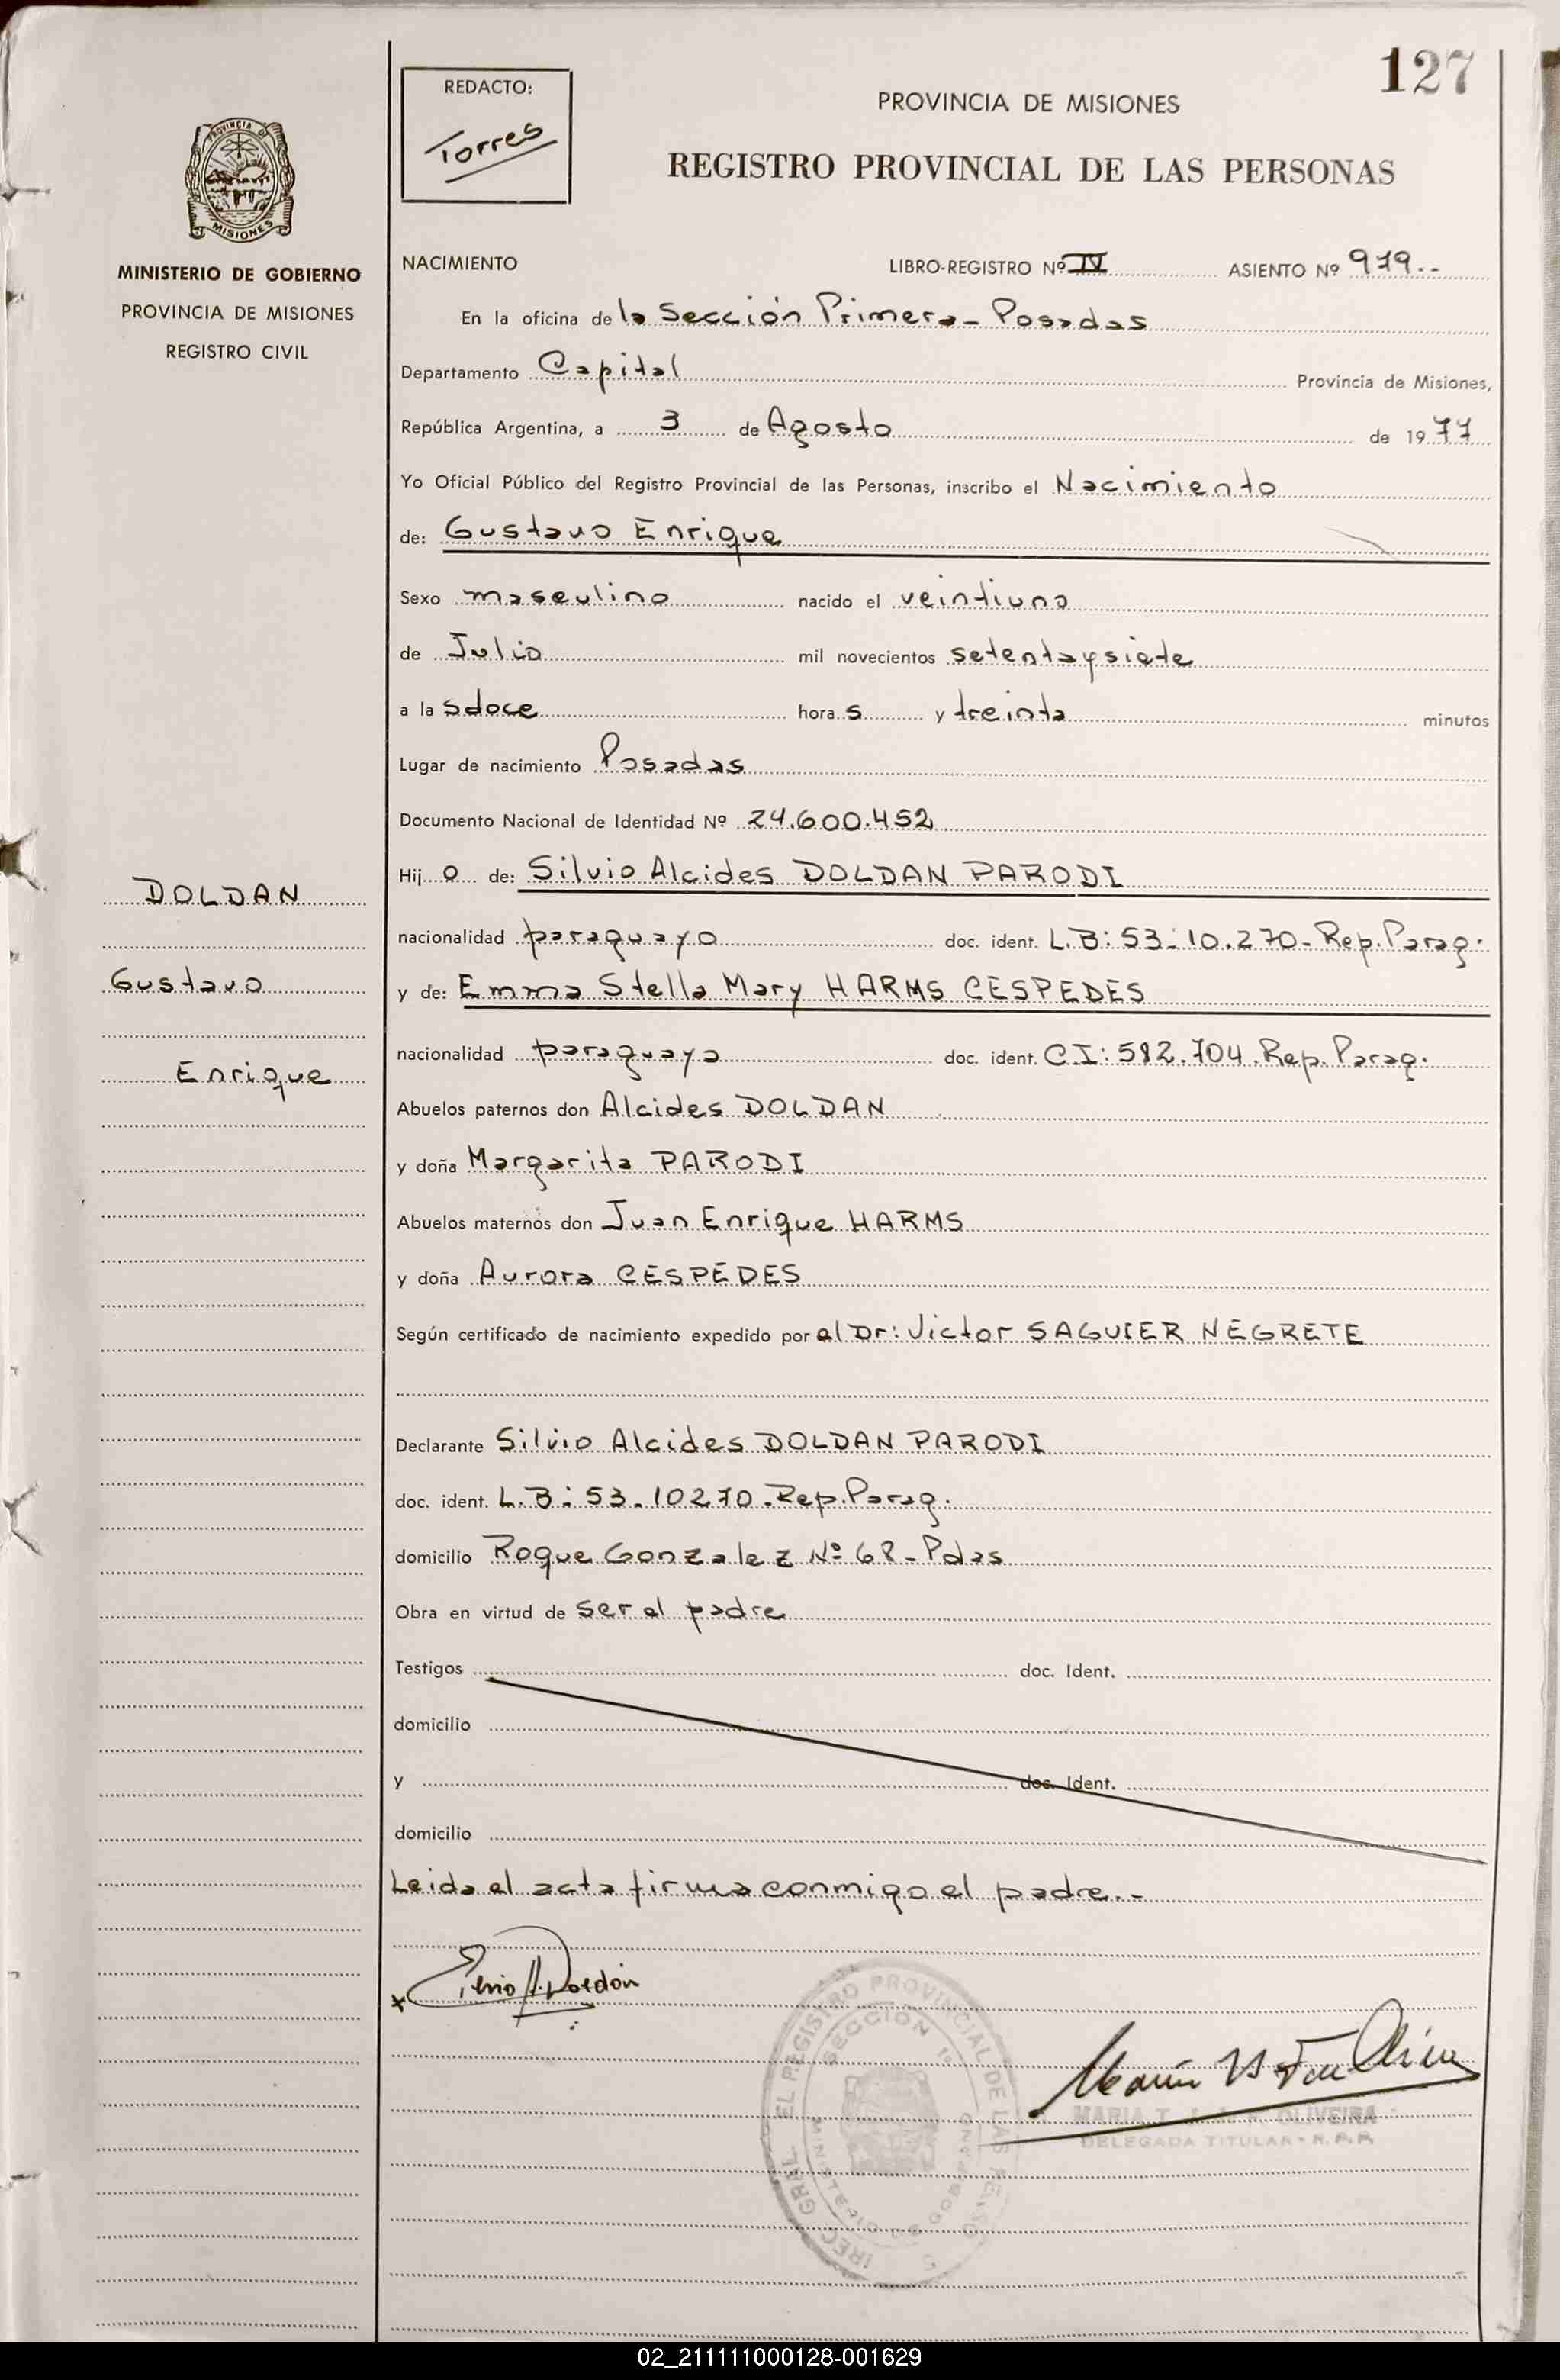 127
REDACTO:
Torres
PROVINCIA DE MISIONES
REGISTRO PROVINCIAL DE LAS PERSONAS
PROVINCIA DE
MISIONES
MINISTERIO DE GOBIERNO
PROVINCIA DE MISIONES
REGISTRO CIVIL
NACIMIENTO LIBRO-REGISTRO Nº IV ASIENTO Nº 979.-
En la oficina de la Sección Primera - Posadas
Departamento Capital Provincia de Misiones,
República Argentina, a 3 de Agosto de 1977
Yo Oficial Público del Registro Provincial de las Personas, inscribo el Nacimiento
de: Gustavo Enrique
Sexo masculino nacido el veintiuno
de Julio mil novecientos setentaysiete
a la sdoce hora s y treinta minutos
Lugar de nacimiento Posadas
Documento Nacional de Identidad Nº 24.600.452
Hij o de: Silvio Alcides DOLDAN PARODI
nacionalidad paraguayo doc. ident. L.B: 53-10.270-Rep.Parag.
y de: Emma Stella Mary HARMS CESPEDES
nacionalidad paraguaya doc. ident. C.I: 592.704.Rep. Parag.
Abuelos paternos don Alcides DOLDAN
y doña Margarita PARODI
Abuelos maternos don Juan Enrique HARMS
y doña Aurora CESPEDES
Según certificado de nacimiento expedido por el Dr: Victor SAGUIER NEGRETE
Declarante Silvio Alcides DOLDAN PARODI
doc. ident. L.B: 53.10270.Rep.Parag.
domicilio Roque Gonzalez Nº 68-Pdas
Obra en virtud de ser el padre
Testigos doc. Ident.
domicilio
y doc. Ident.
domicilio
Leida el acta firma conmigo el padre.-
DOLDAN
Gustavo
Enrique
GRAL EL REGISTRO PROVINCIAL DE LAS
SECCION 1º
MINISTERIO DE GOBIERNO
MARIA T. OLIVEIRA
DELEGADA TITULAR - R.P.P.
02_211111000128-001629